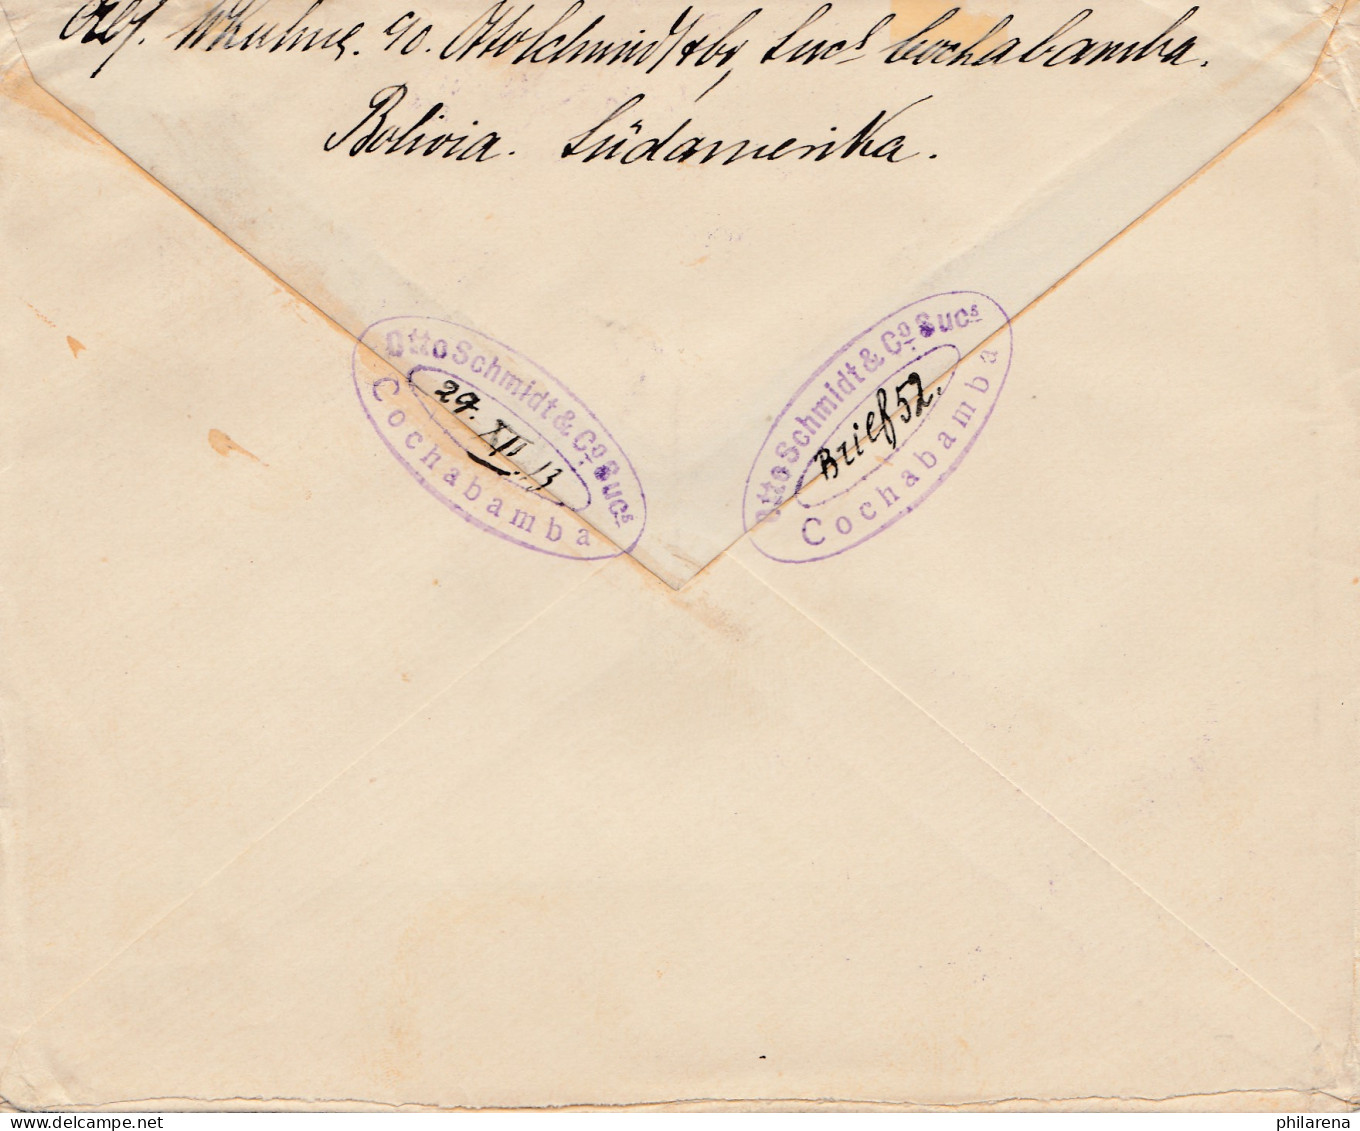 Abs. W Kuhne. 90. Otto Schmidt & Co, Sucs Cochabamba.
Bolivia. Südamerika.
Otto Schmidt & Co. Sucs.
29. XII. 13
Cochabamba
Otto Schmidt & Co. Sucs.
Brief 52.
Cochabamba
philarena